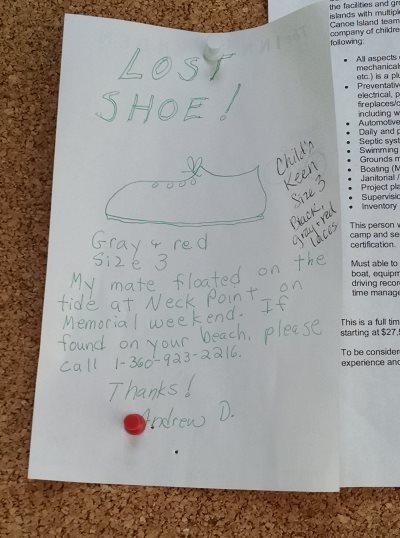 LOST
SHOE!
Child's
Keen
Size 3
Black,
gray+red
laces
Gray & red
Size 3
My mate floated on the
tide at Neck Point on
Memorial weekend. If
found on your beach, please
call 1-360-923-2216.
Thanks!
Andrew D.
the facilities and
islands with multiple
Canoe Island team
company of children
following:
All aspects
mechanical
etc.) is a
Preventative
electrical,
fireplaces/
including
Automotive
Daily and
Septic
Swimming
Grounds
Boating
Janitorial /
Project
Inventory
This person
camp and
certification.
Must able to
boat,
driving
time
This is a full
starting at
To be
experience